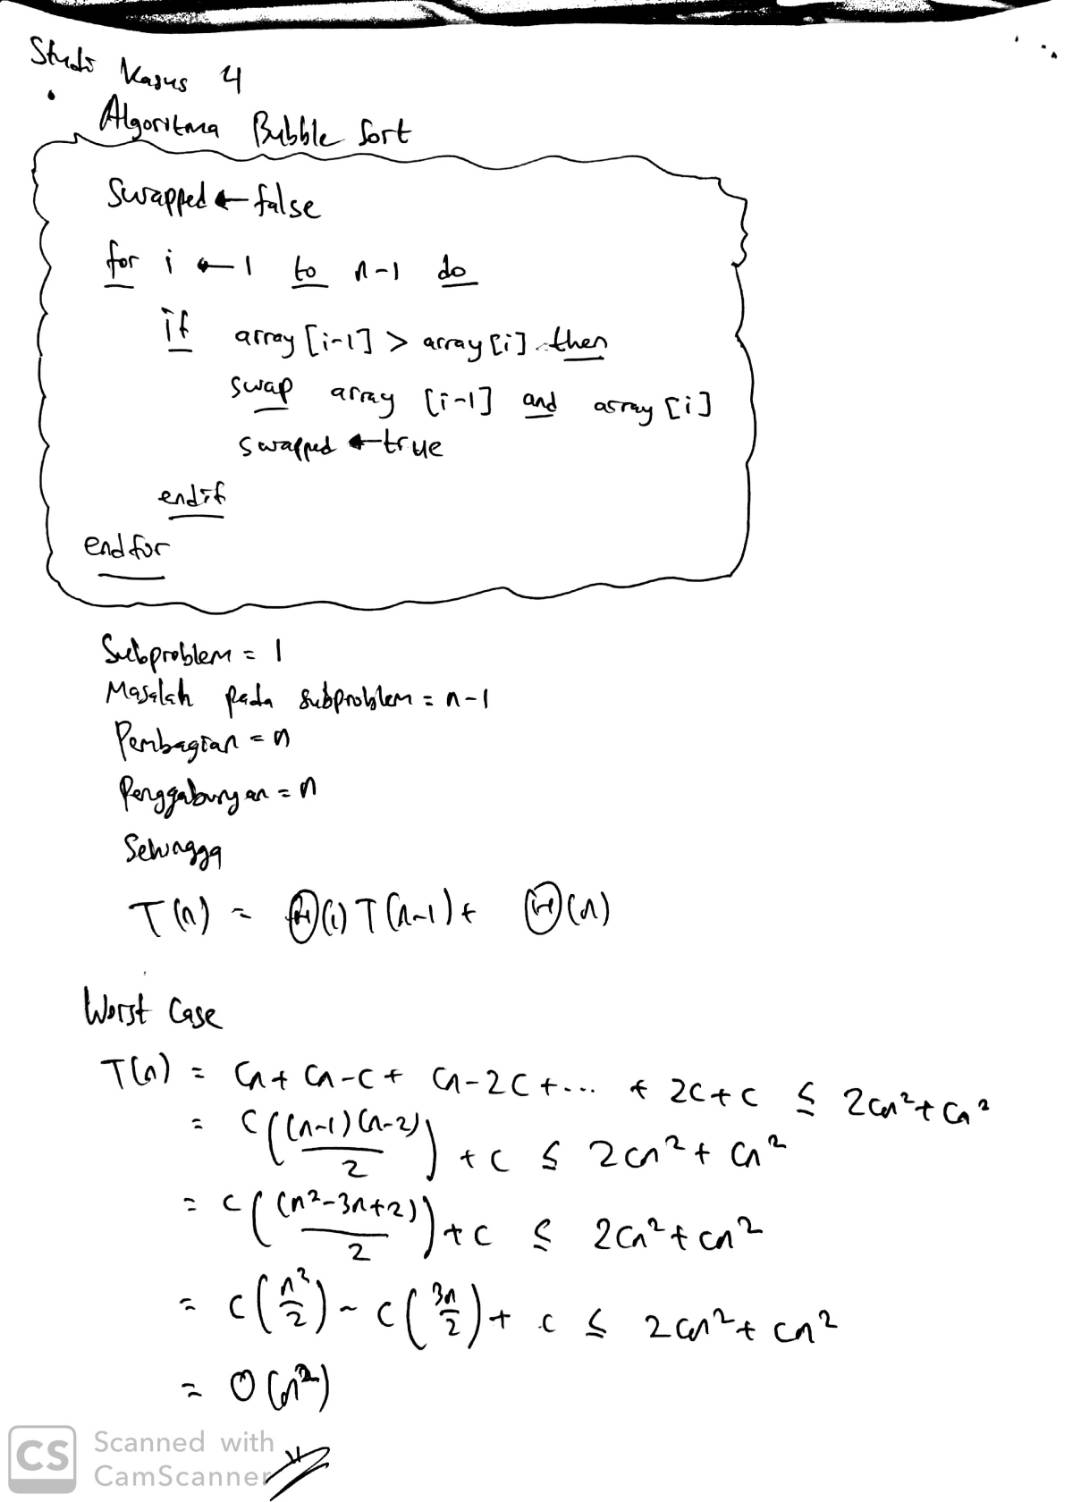 Studi Kasus 4
• Algoritma Bubble Sort
Swapped ← false
for i ← 1 to n-1 do
if array [i-1] > array [i] then
swap array [i-1] and array [i]
swapped ← true
endif
endfor
Subproblem = 1
Masalah pada subproblem = n-1
Pembagian = n
Penggabungan = n
Sehingga
T(n) = Θ(1) T(n-1) + Θ(n)
Worst Case
T(n) = cn + cn-c + cn-2c + ... + 2c + c ≤ 2cn² + cn²
= c((n-1)(n-2)/2) + c ≤ 2cn² + cn²
= c((n²-3n+2)/2) + c ≤ 2cn² + cn²
= c(n²/2) - c(3n/2) + c ≤ 2cn² + cn²
= O(n²)
CS Scanned with
CamScanner